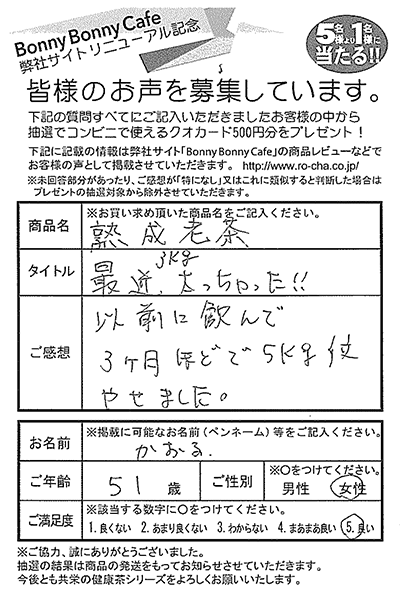 Bonny Bonny Cafe
弊社サイトリニューアル記念
5名様より1名様に
当たる!!
皆様のお声を募集しています。
下記の質問すべてにご記入いただきましたお客様の中から
抽選でコンビニで使えるクオカード500円分をプレゼント!
下記に記載の情報は弊社サイト「Bonny Bonny Cafe」の商品レビューなどで
お客様の声として掲載させていただきます。 http://www.ro-cha.co.jp/
※未回答部分があったり、ご感想が「特になし」又はこれに類似すると判断した場合は
プレゼントの抽選対象から除外させていただきます。
商品名
※お買い求め頂いた商品名をご記入ください。
熟成老茶
タイトル
最近、3kg太っちゃった!!
ご感想
以前に飲んで
3ヶ月ほどで5kg位
やせました。
お名前
※掲載に可能なお名前(ペンネーム)等をご記入ください。
かおる
ご年齢
51歳
ご性別
※○をつけてください。
男性 女性
ご満足度
※該当する数字に○をつけてください。
1. 良くない 2. あまり良くない 3. わからない 4. まあまあ良い 5. 良い
※ご協力、誠にありがとうございました。
抽選の結果は商品の発送をもってお知らせさせていただきます。
今後とも共栄の健康茶シリーズをよろしくお願いいたします。